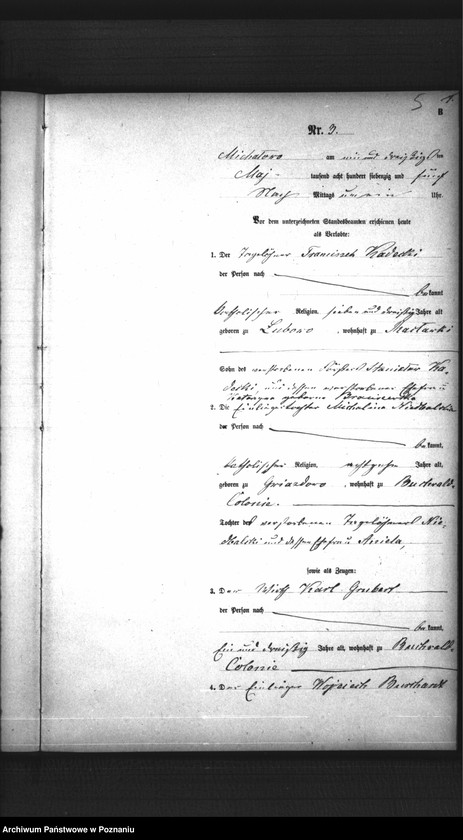 5 1.
B
Nr. 3.
Michalowo am ein und dreißigsten
Maj tausend acht hundert siebenzig und fünf
Nach Mittags um ein Uhr.
Vor dem unterzeichneten Standesbeamten erschienen heute
als Verlobte:
1. Der Tagelöhner Franciszek Kadecki
der Person nach
bekannt
katholischer Religion, sieben und dreißig Jahre alt
geboren zu Lubowo, wohnhaft zu
Sohn des verstorbenen Försters Stanislav Ka-
decki, und dessen verstorbener Ehefrau
geborene
2. Die Einliegertochter Michalina Niedbalska
der Person nach
bekannt,
katholischer Religion, achtzehn Jahre alt,
geboren zu Gwiazdowo, wohnhaft zu Buchwald-
Colonie.
Tochter des verstorbenen Tagelöhners Nie-
dbalski und dessen Ehefrau Aniela,
sowie als Zeugen:
3. Der Wirth Karl Grubert
der Person nach
bekannt,
Ein und dreißig Jahre alt, wohnhaft zu Buchwald-
Colonie
4. Der Einlieger Wojciech Burchardt
Archiwum Państwowe w Poznaniu